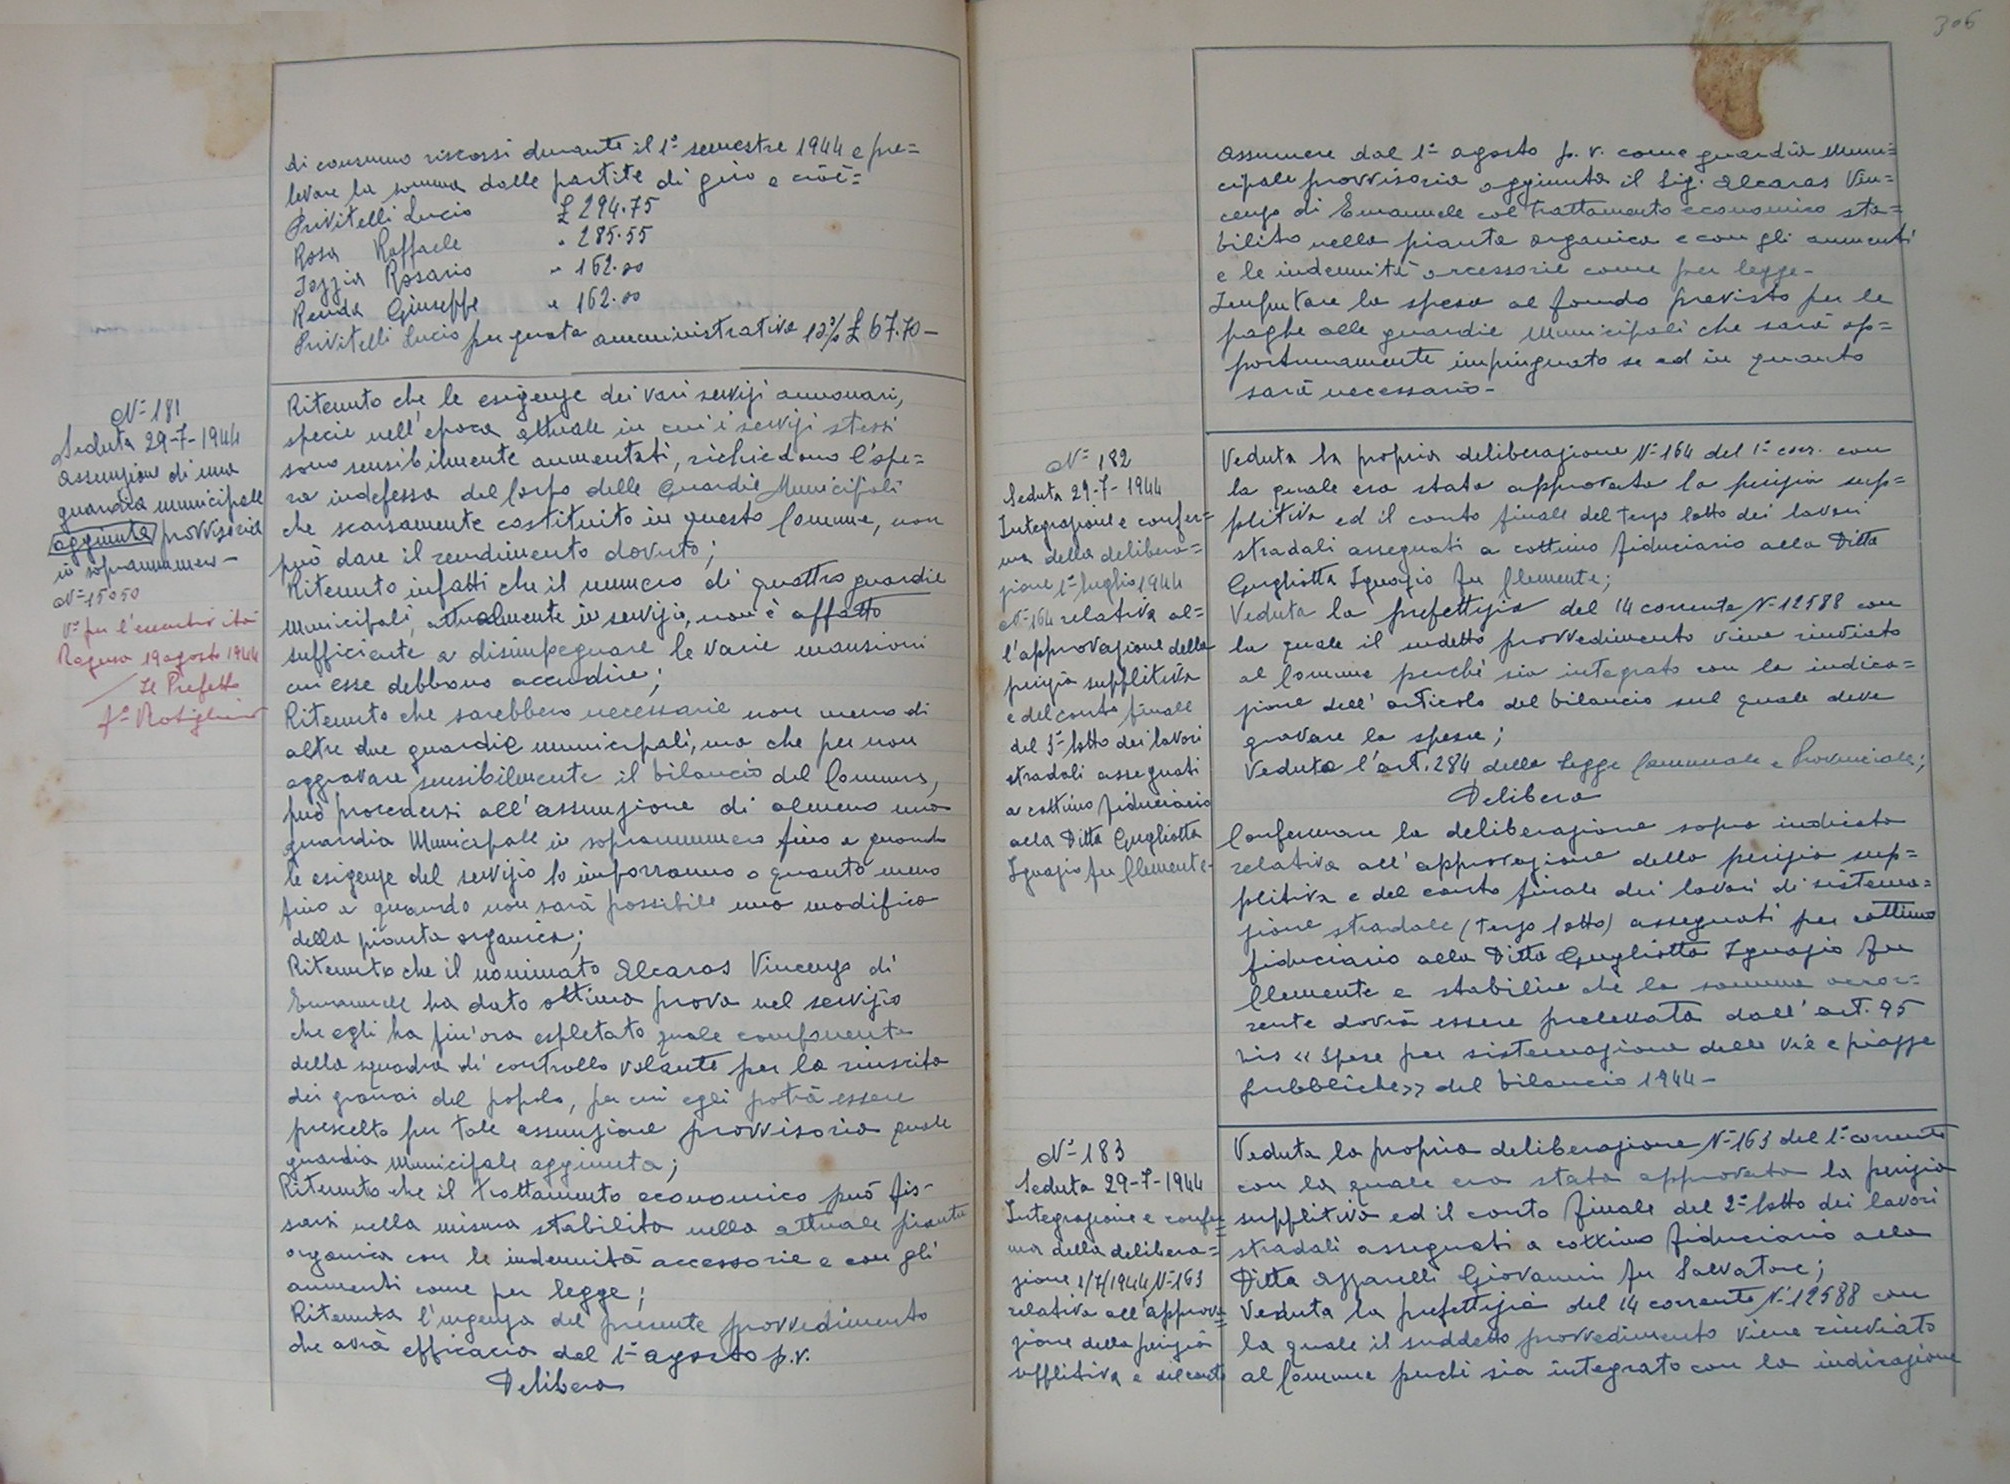 di consumo riscossi durante il 1° semestre 1944 e pre=
levare la somma dalle partite di giro e cioè=
Privitelli Lucio £ 294.75
Rosa Raffaele " 285.55
Iozzia Rosario " 162.00
Renda Giuseppe " 162.00
Privitelli Lucio per quota amministrativa 12% £ 67.70-
N° 181
Seduta 29-7-1944
Assunzione di una
guardia municipale
aggiunta provvisoria
in soprannumero-
N° 15050
V° per l'esecutività
Ragusa 19 agosto 1944
Il Prefetto
Ritenuto che le esigenze dei vari servizi annonari,
specie nell'epoca attuale in cui i servizi stessi
sono sensibilmente aumentati, richiedono l'ope=
ra indefessa del Corpo delle Guardie Municipali
che scarsamente costituito in questo Comune, non
può dare il rendimento dovuto;
Ritenuto infatti che il numero di quattro guardie
municipali, attualmente in servizio, non è affatto
sufficiente a disimpegnare le varie mansioni
cui esse debbono accudire;
Ritenuto che sarebbero necessarie non meno di
altre due guardie municipali, ma che per non
aggravare sensibilmente il bilancio del Comune,
può procedersi all'assunzione di almeno una
guardia Municipale in soprannumero fino a quando
le esigenze del servizio lo imporranno o quanto meno
fino a quando non sarà possibile una modifica
della pianta organica;
Ritenuto che il nominato Alcaras Vincenzo di
Emanuele ha dato ottima prova nel servizio
che egli ha fin'ora espletato quale componente
della squadra di controllo volante per la riuscita
dei granai del popolo, per cui egli potrà essere
prescelto per tale assunzione provvisoria quale
guardia Municipale aggiunta;
Ritenuto che il trattamento economico può fis-
sarsi nella misura stabilita nella attuale pianta
organica con le indennità accessorie e con gli
aumenti come per legge;
Ritenuta l'urgenza del presente provvedimento
che avrà efficacia dal 1° agosto p.v.
Delibera
306
Assumere dal 1° agosto p.v. come guardia Muni=
cipale provvisoria aggiunta il Sig. Alcaras Vin=
cenzo di Emanuele col trattamento economico sta=
bilito nella pianta organica e con gli aumenti
e le indennità accessorie come per legge-
Imputare la spesa al fondo previsto per le
paghe alle guardie Municipali che sarà op=
portunamente impinguato se ed in quanto
sarà necessario-
N° 182
Seduta 29-7-1944
Integrazione e confer=
ma della delibera=
zione 1° luglio 1944
N° 164 relativa al=
l'approvazione della
perizia suppletiva
e del conto finale
del 3° lotto dei lavori
stradali assegnati
a cottimo fiduciario
alla Ditta Gugliotta
Ignazio fu Clemente-
Veduta la propria deliberazione N° 164 del 1° corr. con
la quale era stata approvata la perizia sup=
plitiva ed il conto finale del terzo lotto dei lavori
stradali assegnati a cottimo fiduciario alla Ditta
Gugliotta Ignazio fu Clemente;
Veduta la prefettizia del 14 corrente N° 12588 con
la quale il sudetto provvedimento viene rinviato
al Comune perchè sia integrato con la indica=
zione dell'articolo del bilancio sul quale deve
gravare la spesa;
Veduto l'art. 284 della Legge Comunale e Provinciale;
Delibera
Confermare la deliberazione sopra indicata
relativa all'approvazione della perizia sup=
plitiva e del conto finale dei lavori di sistema=
zione stradale (terzo lotto) assegnati per cottimo
fiduciario alla Ditta Gugliotta Ignazio fu
Clemente e stabilire che la somma occor=
rente dovrà essere prelevata dall'art. 95
bis «Spese per sistemazione delle vie e piazze
pubbliche» del bilancio 1944-
N° 183
Seduta 29-7-1944
Integrazione e confer=
ma della delibera=
zione 1/7/1944 N° 163
relativa all'approva=
zione della perizia
supplitiva e del conto
Veduta la propria deliberazione N° 163 del 1° corrente
con la quale era stata approvata la perizia
supplitiva ed il conto finale del 2° lotto dei lavori
stradali assegnati a cottimo fiduciario alla
Ditta Azzarelli Giovanni fu Salvatore;
Veduta la prefettizia del 14 corrente N° 12588 con
la quale il suddetto provvedimento viene rinviato
al Comune perchè sia integrato con la indicazione